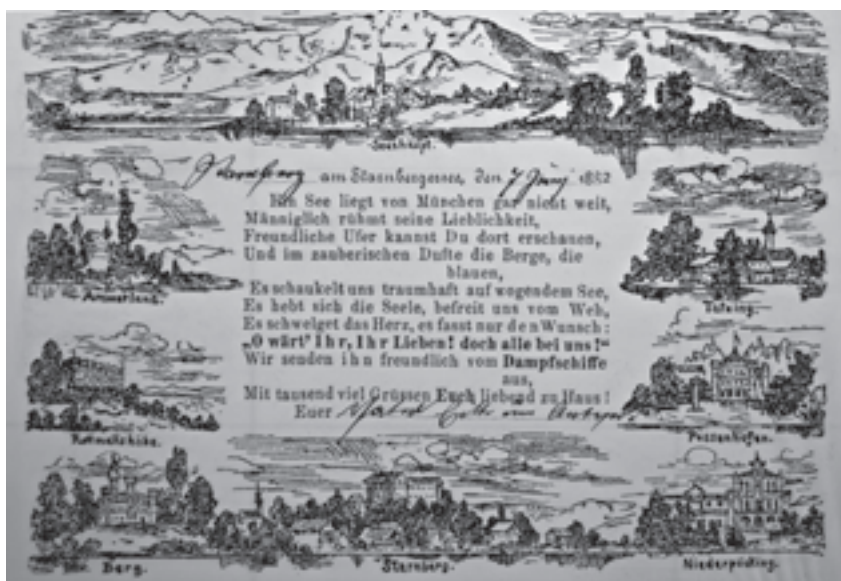 Seeshaupt.
Starnberg am Starnbergersee, den 7 Juni 1882
Ein See liegt von München gar nicht weit,
Männiglich rühmt seine Lieblichkeit,
Freundliche Ufer kannst Du dort erschauen,
Und im zauberischen Dufte die Berge, die
blauen,
Es schaukelt uns traumhaft auf wogendem See,
Es hebt sich die Seele, befreit uns vom Weh,
Es schwelget das Herz, es fasst nur den Wunsch:
„O wärt' Ihr, Ihr Lieben! doch alle bei uns!"
Wir senden ihn freundlich vom Dampfschiffe
aus,
Mit tausend viel Grüssen Euch liebend zu Haus!
Euer
Ammerland.
Tutzing.
Rottmannshöhe.
Possenhofen.
Berg.
Starnberg.
Niederpöcking.